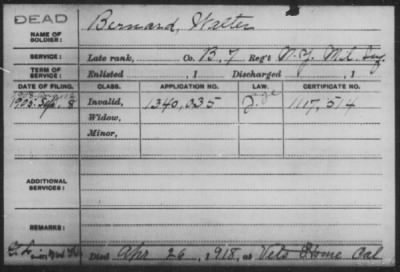 DEAD
NAME OF SOLDIER: Bernard, Walter
SERVICE: Late rank, Co. B, 7 Reg't N.Y. Mt. Inf
TERM OF SERVICE: Enlisted , 1 Discharged , 1
DATE OF FILING. CLASS. APPLICATION NO. LAW. CERTIFICATE NO.
1905. Sep. 8 Invalid, 1340,035 1117,514
Widow,
Minor,
ADDITIONAL SERVICES:
REMARKS:
Died Apr. 26, 1918, at Vets Home Cal